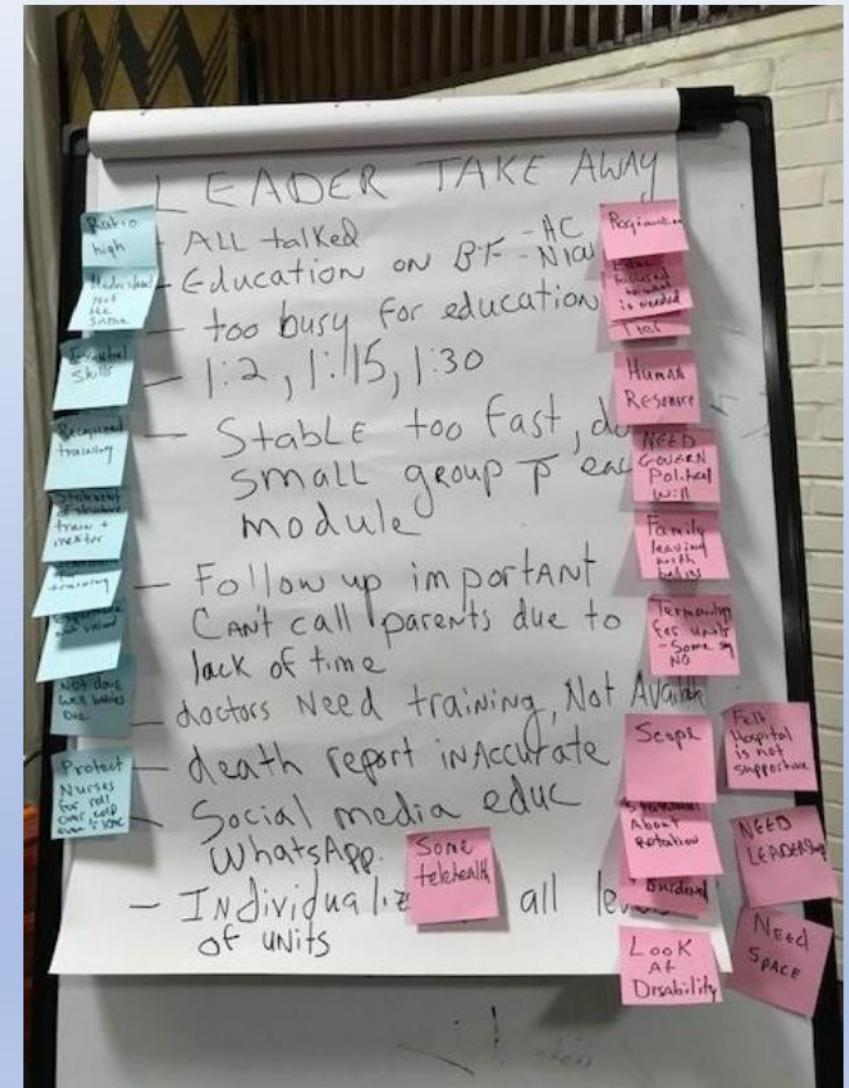 LEADER TAKE AWAY
- ALL talked
- Education on BF - AC
- NICU
- too busy for education
- 1:2, 1:15, 1:30
- StabLE too fast, do
small group p̄ eac
module
- Follow up important
Can't call parents due to
lack of time
- doctors Need training, Not Availabl
- death report inAccurate
- Social media educ
WhatsApp.
- Individualize all levels
of units
Ratio
high
Understand
Not
the
Same
Essential
Skills
Recognized
training
train +
mentor
training
Not done
well babies
Die
Protect
Nurses
for roll
over cold
focused
is needed
Tier
Human
Resource
NEED
GOVERN
Political
Will
Family
leaving
with
babies
Terminology
for units
- Some say
NO
Scope
Felt
Hospital
is not
supportive
About
Rotation
NEED
LEADERship
Burdened
Some
telehealth
Look
At
Disability
NEED
SPACE